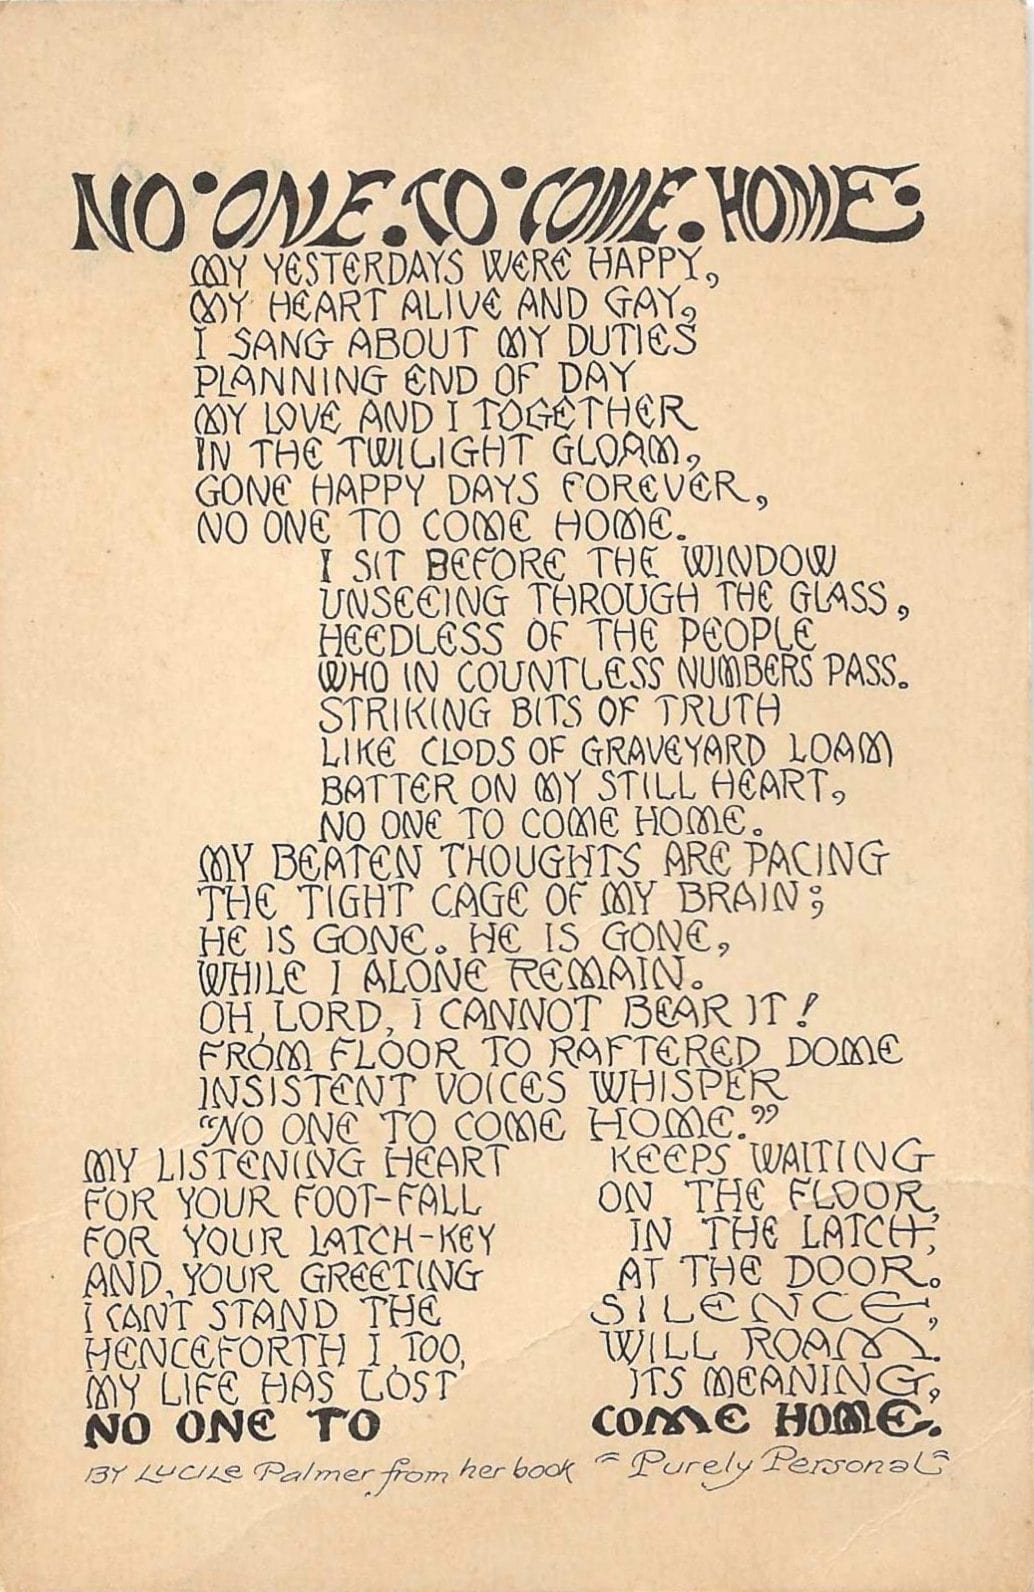 NO·ONE.TO·COME.HOME:
MY YESTERDAYS WERE HAPPY,
MY HEART ALIVE AND GAY,
I SANG ABOUT MY DUTIES
PLANNING END OF DAY
MY LOVE AND I TOGETHER
IN THE TWILIGHT GLOAM,
GONE HAPPY DAYS FOREVER,
NO ONE TO COME HOME.
I SIT BEFORE THE WINDOW
UNSEEING THROUGH THE GLASS,
HEEDLESS OF THE PEOPLE
WHO IN COUNTLESS NUMBERS PASS.
STRIKING BITS OF TRUTH
LIKE CLODS OF GRAVEYARD LOAM
BATTER ON MY STILL HEART,
NO ONE TO COME HOME.
MY BEATEN THOUGHTS ARE PACING
THE TIGHT CAGE OF MY BRAIN;
HE IS GONE. HE IS GONE,
WHILE I ALONE REMAIN.
OH, LORD, I CANNOT BEAR IT!
FROM FLOOR TO RAFTERED DOME
INSISTENT VOICES WHISPER
"NO ONE TO COME HOME."
MY LISTENING HEART KEEPS WAITING
FOR YOUR FOOT-FALL ON THE FLOOR,
FOR YOUR LATCH-KEY IN THE LATCH,
AND, YOUR GREETING AT THE DOOR.
I CAN'T STAND THE SILENCE,
HENCEFORTH I, TOO, WILL ROAM.
MY LIFE HAS LOST ITS MEANING,
NO ONE TO COME HOME.
BY LUCILE Palmer from her book "Purely Personal"